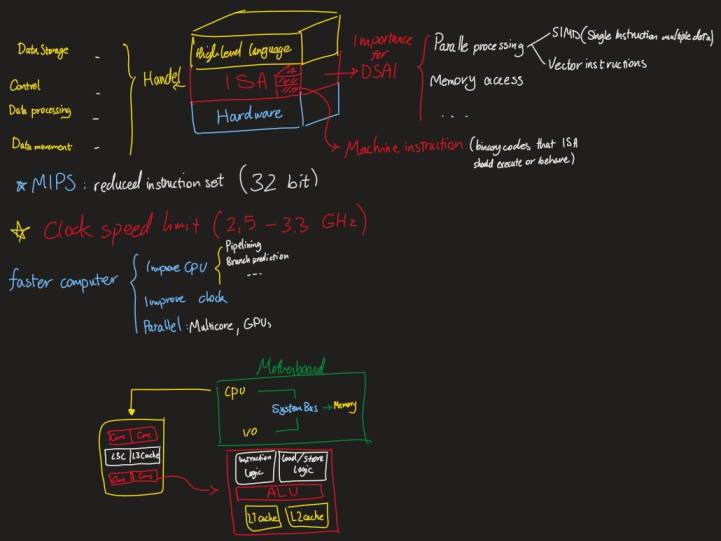 Data Storage -
Control -
Data processing -
Data movement -
Handel
High level Language
ISA
Hardware
Importance
for
DSAI
Paralle processing
SIMD (Single Instruction multiple data)
Vector instructions
Memory access
....
Machine instruction (binary codes that ISA
should execute or behave)
MIPS : reduced instruction set (32 bit)
Clock speed limit (2,5 - 3.3 GHz)
faster computer
Impove CPU
Pipelining
Branch prediction
---
Improve clock
Parallel : Multicore, GPUs
Motherboard
CPU
System Bus → Memory
I/O
Core Core
L3C L3Cache
Core Core
Instruction
Logic
Load/store
Logic
ALU
L1 cache
L2 cache